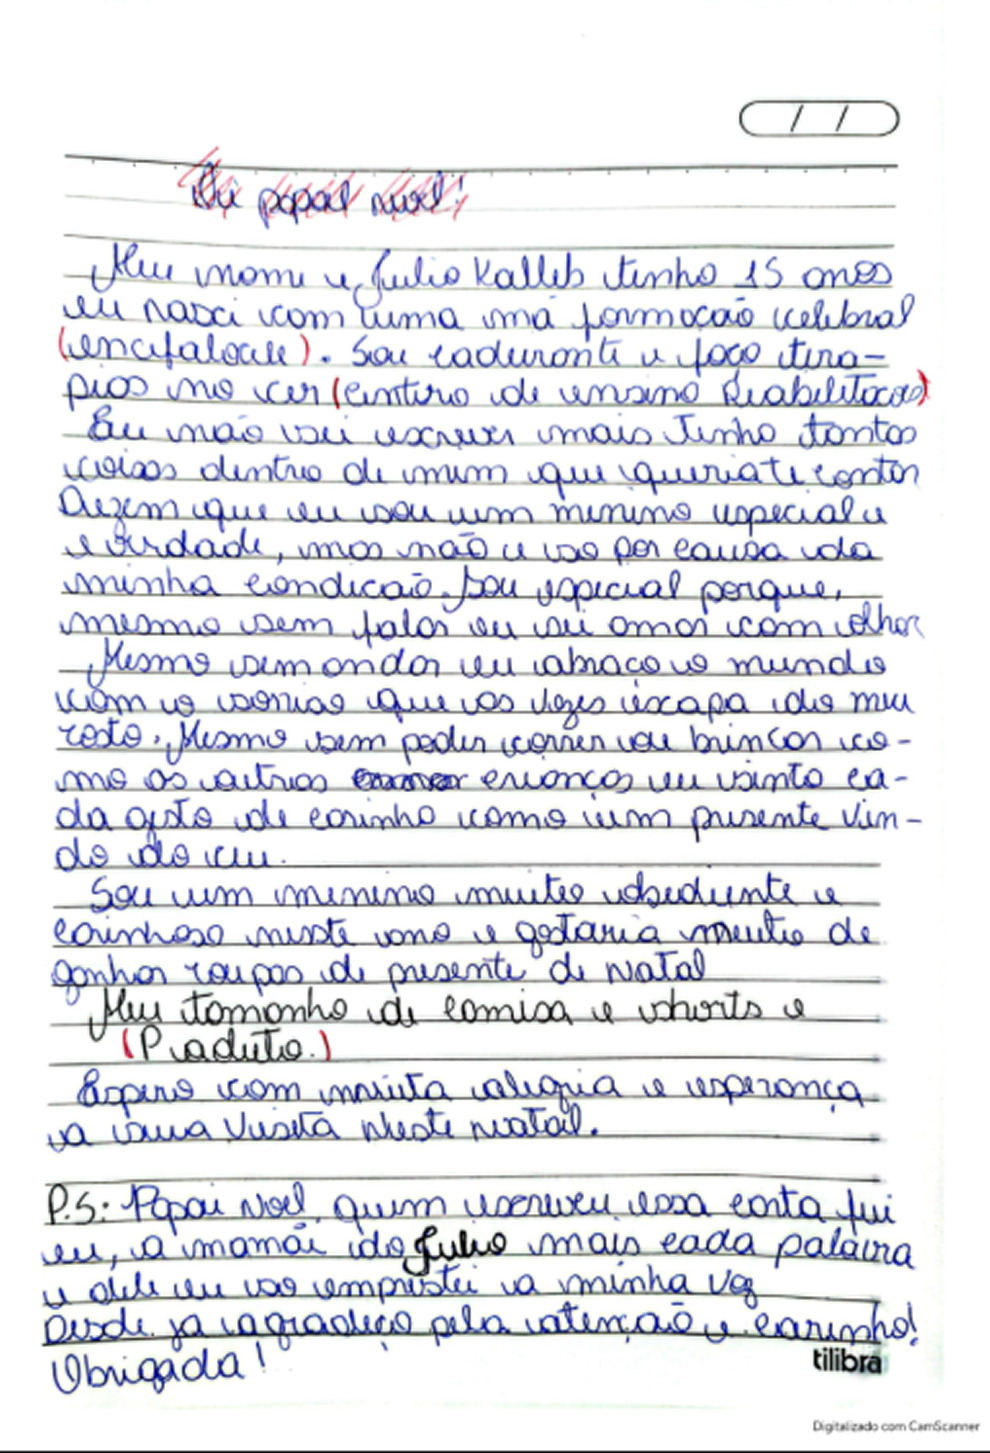 Oi papai noel!
Meu nome e Julio Kalleb tenho 15 anos
eu nasci com uma má formoção celebral
(encefalocele). Sou cadurante e faço tera-
pias no cer (Centro de ensino Reabilitacao)
Eu não sei escrever mais Tenho tantas
coisas dentro de mim que queria te contar
Dizem que eu sou um menino especial e
e verdade, mas não e so por causa da
minha condicão. Sou especial porque,
mesmo sem falar eu sei amar com olhar
Mesmo sem andar eu abraço o mundo
com o soriso que as vezes escapa do meu
rosto. Mesmo sem poder correr ou brincar co-
mo as outras crianças eu sinto ca-
da gesto de carinho como um presente vin-
do do ceu.
Sou um menino muito obediente e
carinhoso neste ano e gostaria muito de
ganhar roupas de presente de Natal
Meu tamanho de camisa e shorts e
(P adulto.)
Espero com muita alegria e esperança
a sua visita neste natal.
P.S: Papai Noel, quem escreveu essa carta fui
eu, a mamãe do Julio mais cada palavra
e dele eu so emprestei a minha voz
Desde já agradeço pela atenção e carinho!
Obrigada!
tilibra
Digitalizado com CamScanner